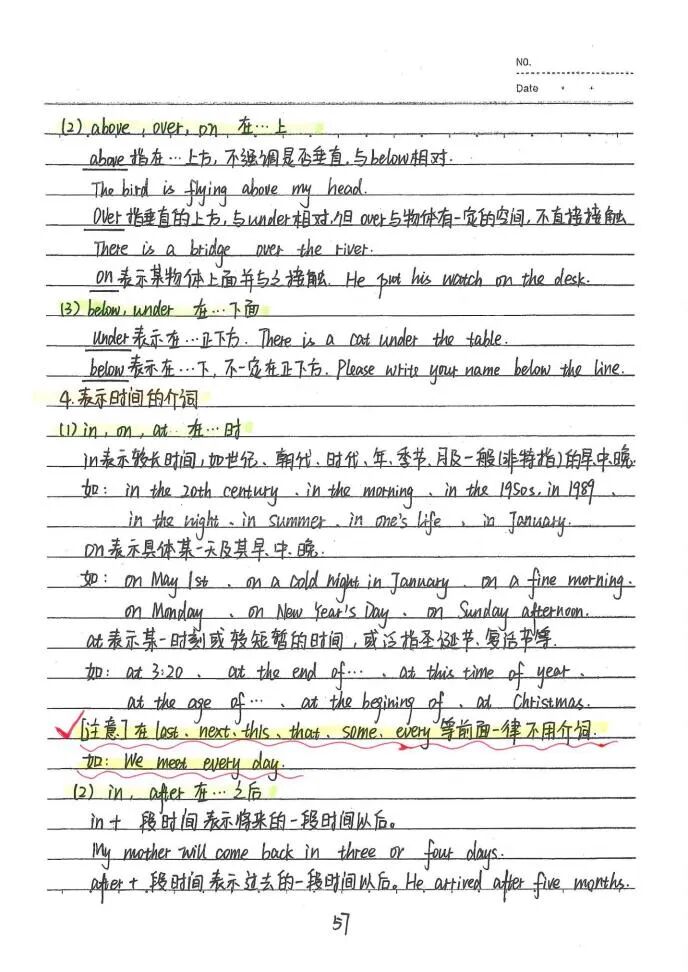 NO.
Date
(2) above, over, on 在…上
above 指在…上方, 不强调是否垂直, 与below相对.
The bird is flying above my head.
Over 指垂直的上方, 与under相对, 但over与物体有一定的空间, 不直接接触
There is a bridge over the river.
on 表示某物体上面并与之接触. He put his watch on the desk.
(3) below, under 在…下面
under 表示在…正下方. There is a cat under the table.
below 表示在…下, 不一定在正下方. Please write your name below the line.
4. 表示时间的介词
(1) in, on, at 在…时
in 表示较长时间, 如世纪、朝代、时代、年、季节、月及一般(非特指)的早.中.晚.
如: in the 20th century 、in the morning 、in the 1950s, in 1989 、
in the night 、in summer 、in one's life 、in January.
on 表示具体某一天及其早、中、晚.
如: on May 1st 、on a cold night in January 、on a fine morning.
on Monday 、on New Year's Day 、on Sunday afternoon.
at 表示某一时刻或较短暂的时间, 或泛指圣诞节、复活节等.
如: at 3:20 、at the end of… 、at this time of year 、
at the age of… 、at the begining of 、at Christmas.
[注意] 在 last、next、this、that、some、every 等前面一律不用介词.
如: We meet every day.
(2) in, after 在…之后
in + 段时间 表示将来的一段时间以后。
My mother will come back in three or four days.
after + 段时间 表示过去的一段时间以后。He arrived after five months.
57